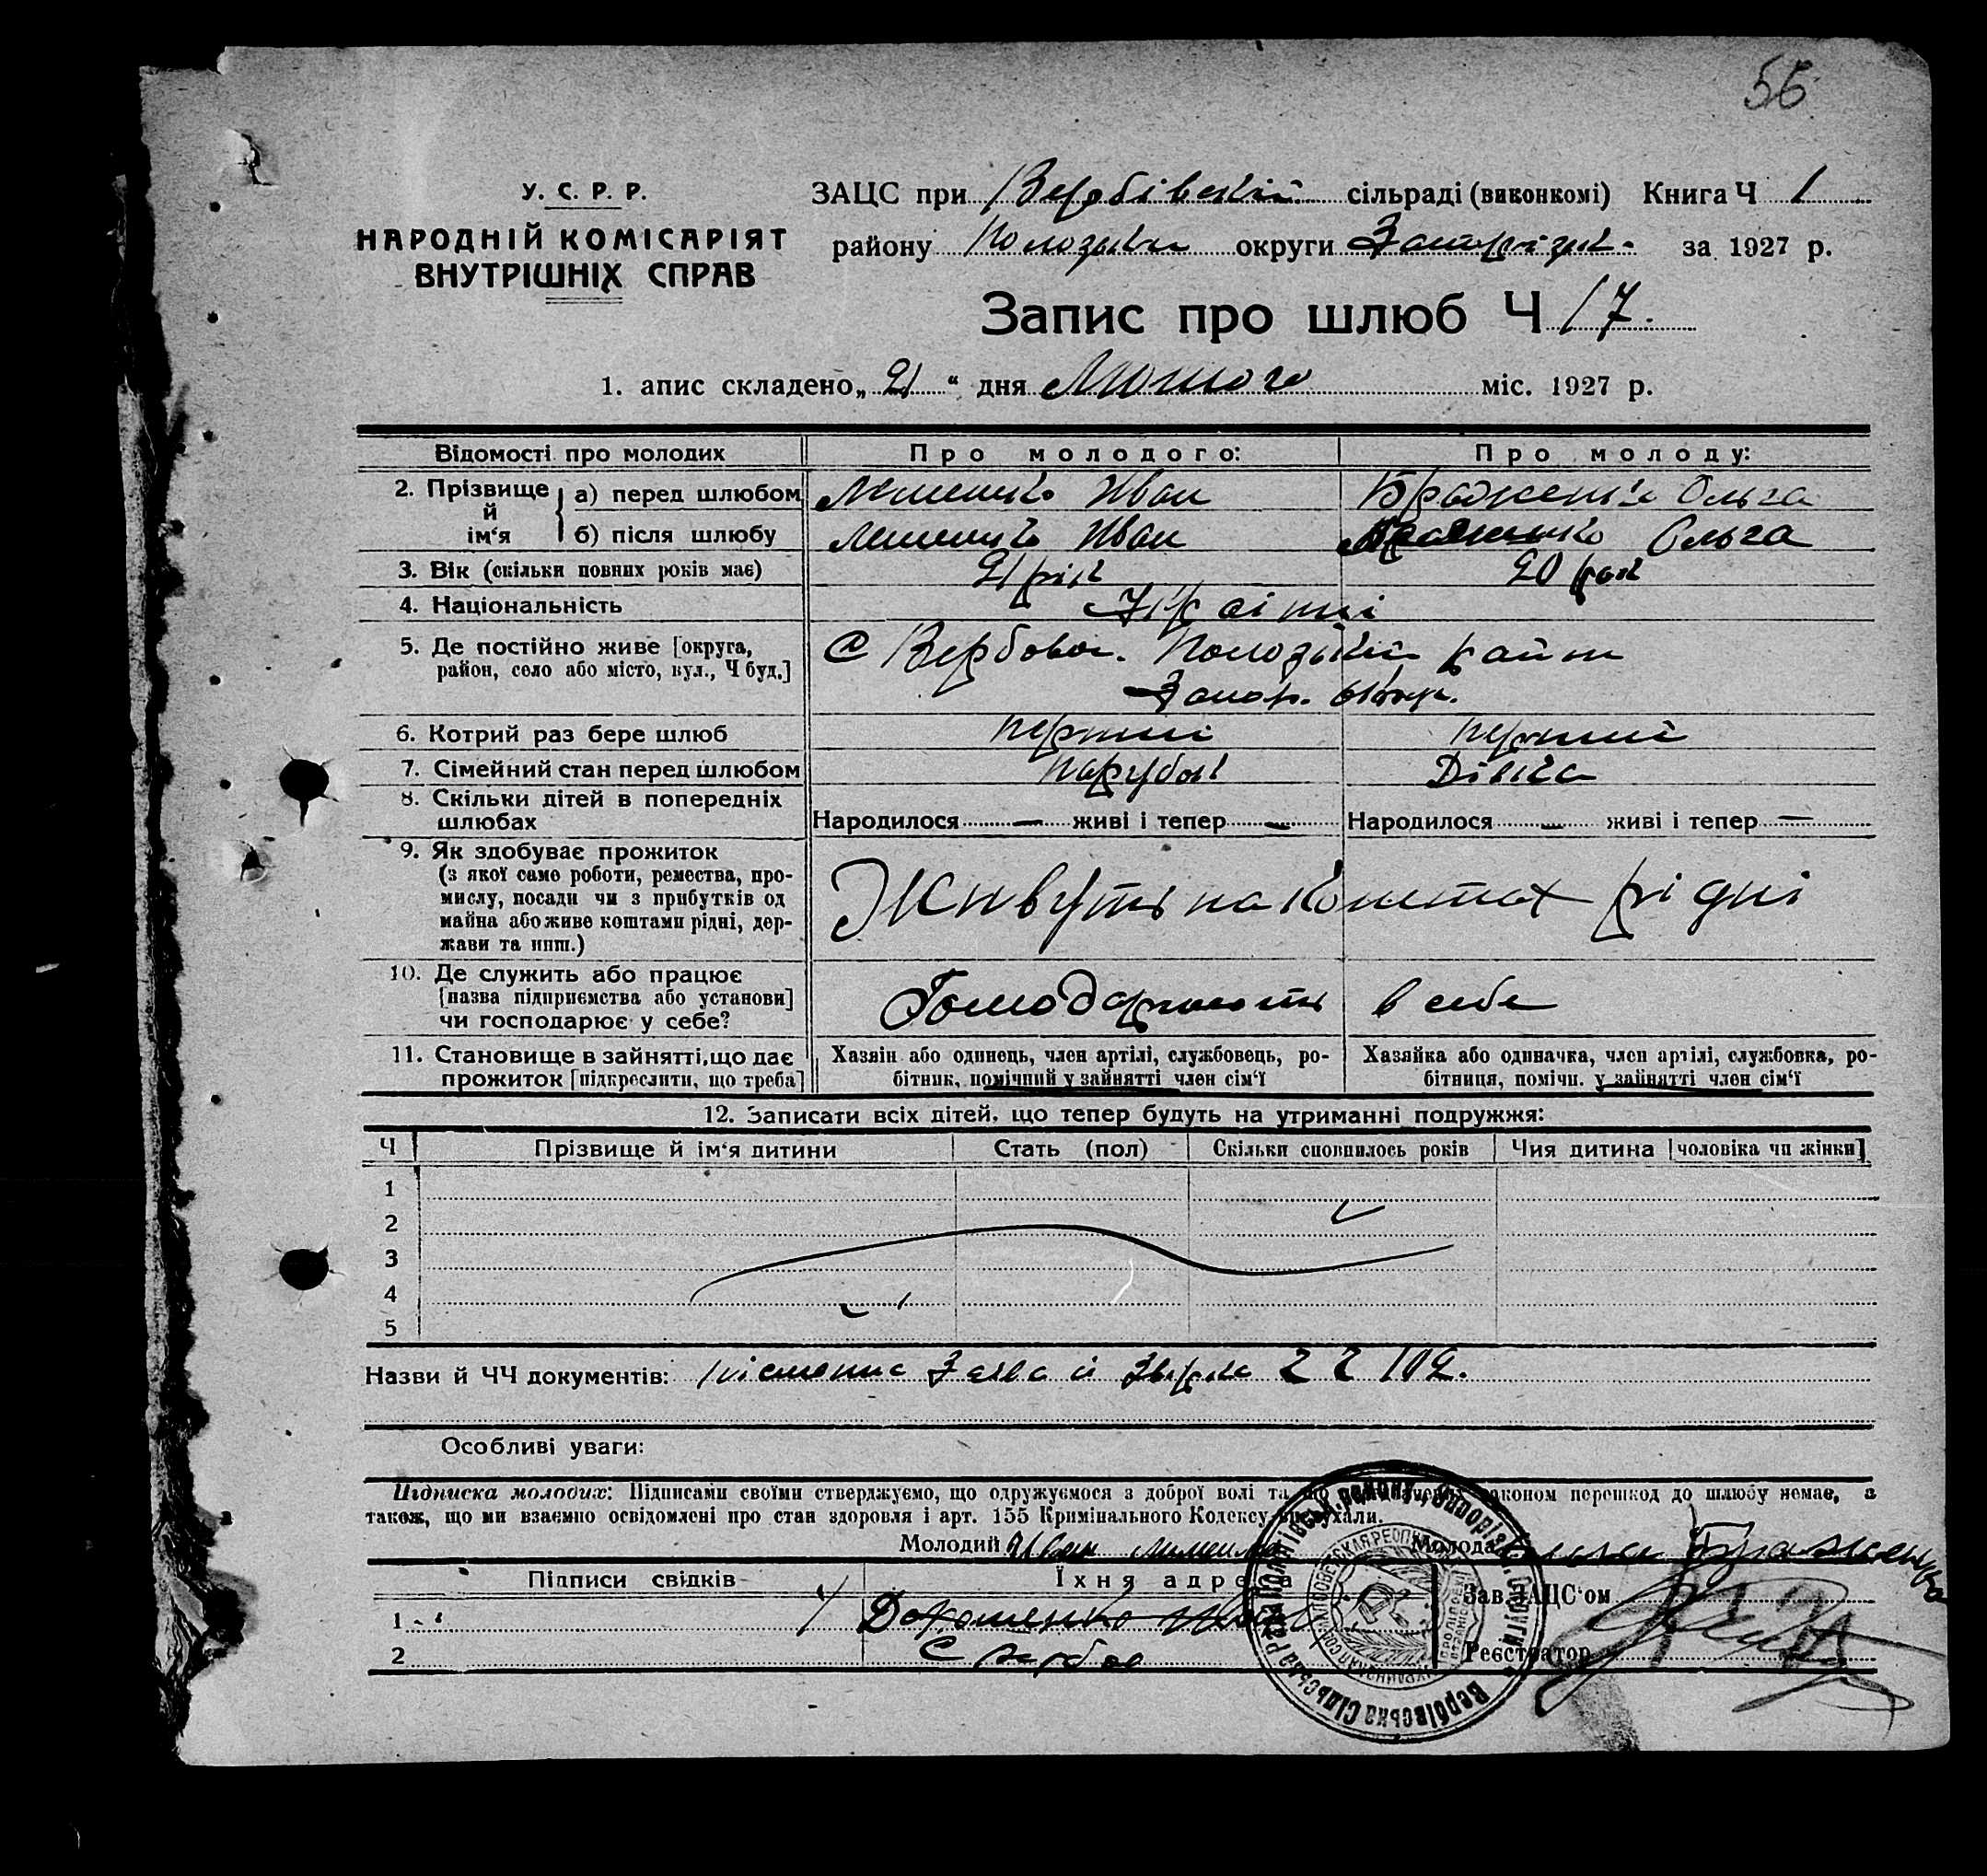 56
У. С. Р. Р.
НАРОДНІЙ КОМІСАРІЯТ
ВНУТРІШНІХ СПРАВ
ЗАЦС при Вербівській сільраді (виконкомі) Книга Ч 1
району Пологськ округи Запоріжж. за 1927 р.
Запис про шлюб Ч 17.
1. апис складено „21“ дня Лютого міс. 1927 р.
Відомості про молодих Про молодого: Про молоду:
2. Прізвище й ім‘я
а) перед шлюбом Иван Ольга
б) після шлюбу Иван Ольга
3. Вік (скільки повних років має) 21 рік 20 рок
4. Національність Україниі
5. Де постійно живе [округа, район, село або місто, вул., Ч буд.]
С Вербовое. район
Запор. округ.
6. Котрий раз бере шлюб перший перший
7. Сімейний стан перед шлюбом парубок Дівка
8. Скільки дітей в попередніх шлюбах Народилося — живі і тепер — Народилося — живі і тепер —
9. Як здобуває прожиток
(з якої саме роботи, ремества, про-
мислу, посади чи з прибутків од
майна або живе коштами рідні, дер-
жави та инш.)
Живуть на коштах рідні
10. Де служить або працює
[назва підприємства або установи]
чи господарює у себе?
в себе
11. Становище в зайнятті, що дає
прожиток [підкреслити, що треба]
Хазяін або одинець, член артілі, службовець, ро-
бітник, помічний у зайнятті член сім‘ї
Хазяйка або одиначка, член артілі, службовка, ро-
бітниця, помічн. у зайнятті член сім‘ї
12. Записати всіх дітей, що тепер будуть на утриманні подружжя:
Ч Прізвище й ім‘я дитини Стать (пол) Скільки сповнилось років Чия дитина [чоловіка чи жінки]
1
2
3
4
5
Назви й ЧЧ документів: Заява й 102.
Особливі уваги:
Підписка молодих: Підписами своїми стверджуємо, що одружуємося з доброї волі та що законом перешкод до шлюбу немає, а
також, що ми взаємно освідомлені про стан здоровля і арт. 155 Кримінального Кодексу вислухали.
Молодий Иван Молода
Підписи свідків Їхня адреса Зав. ЗАЦС‘ом
1 Дорошенко
2 С верб Реєстратор
Вербівська Сільська Рада Пологівськ. району, Запорізьк. Округи